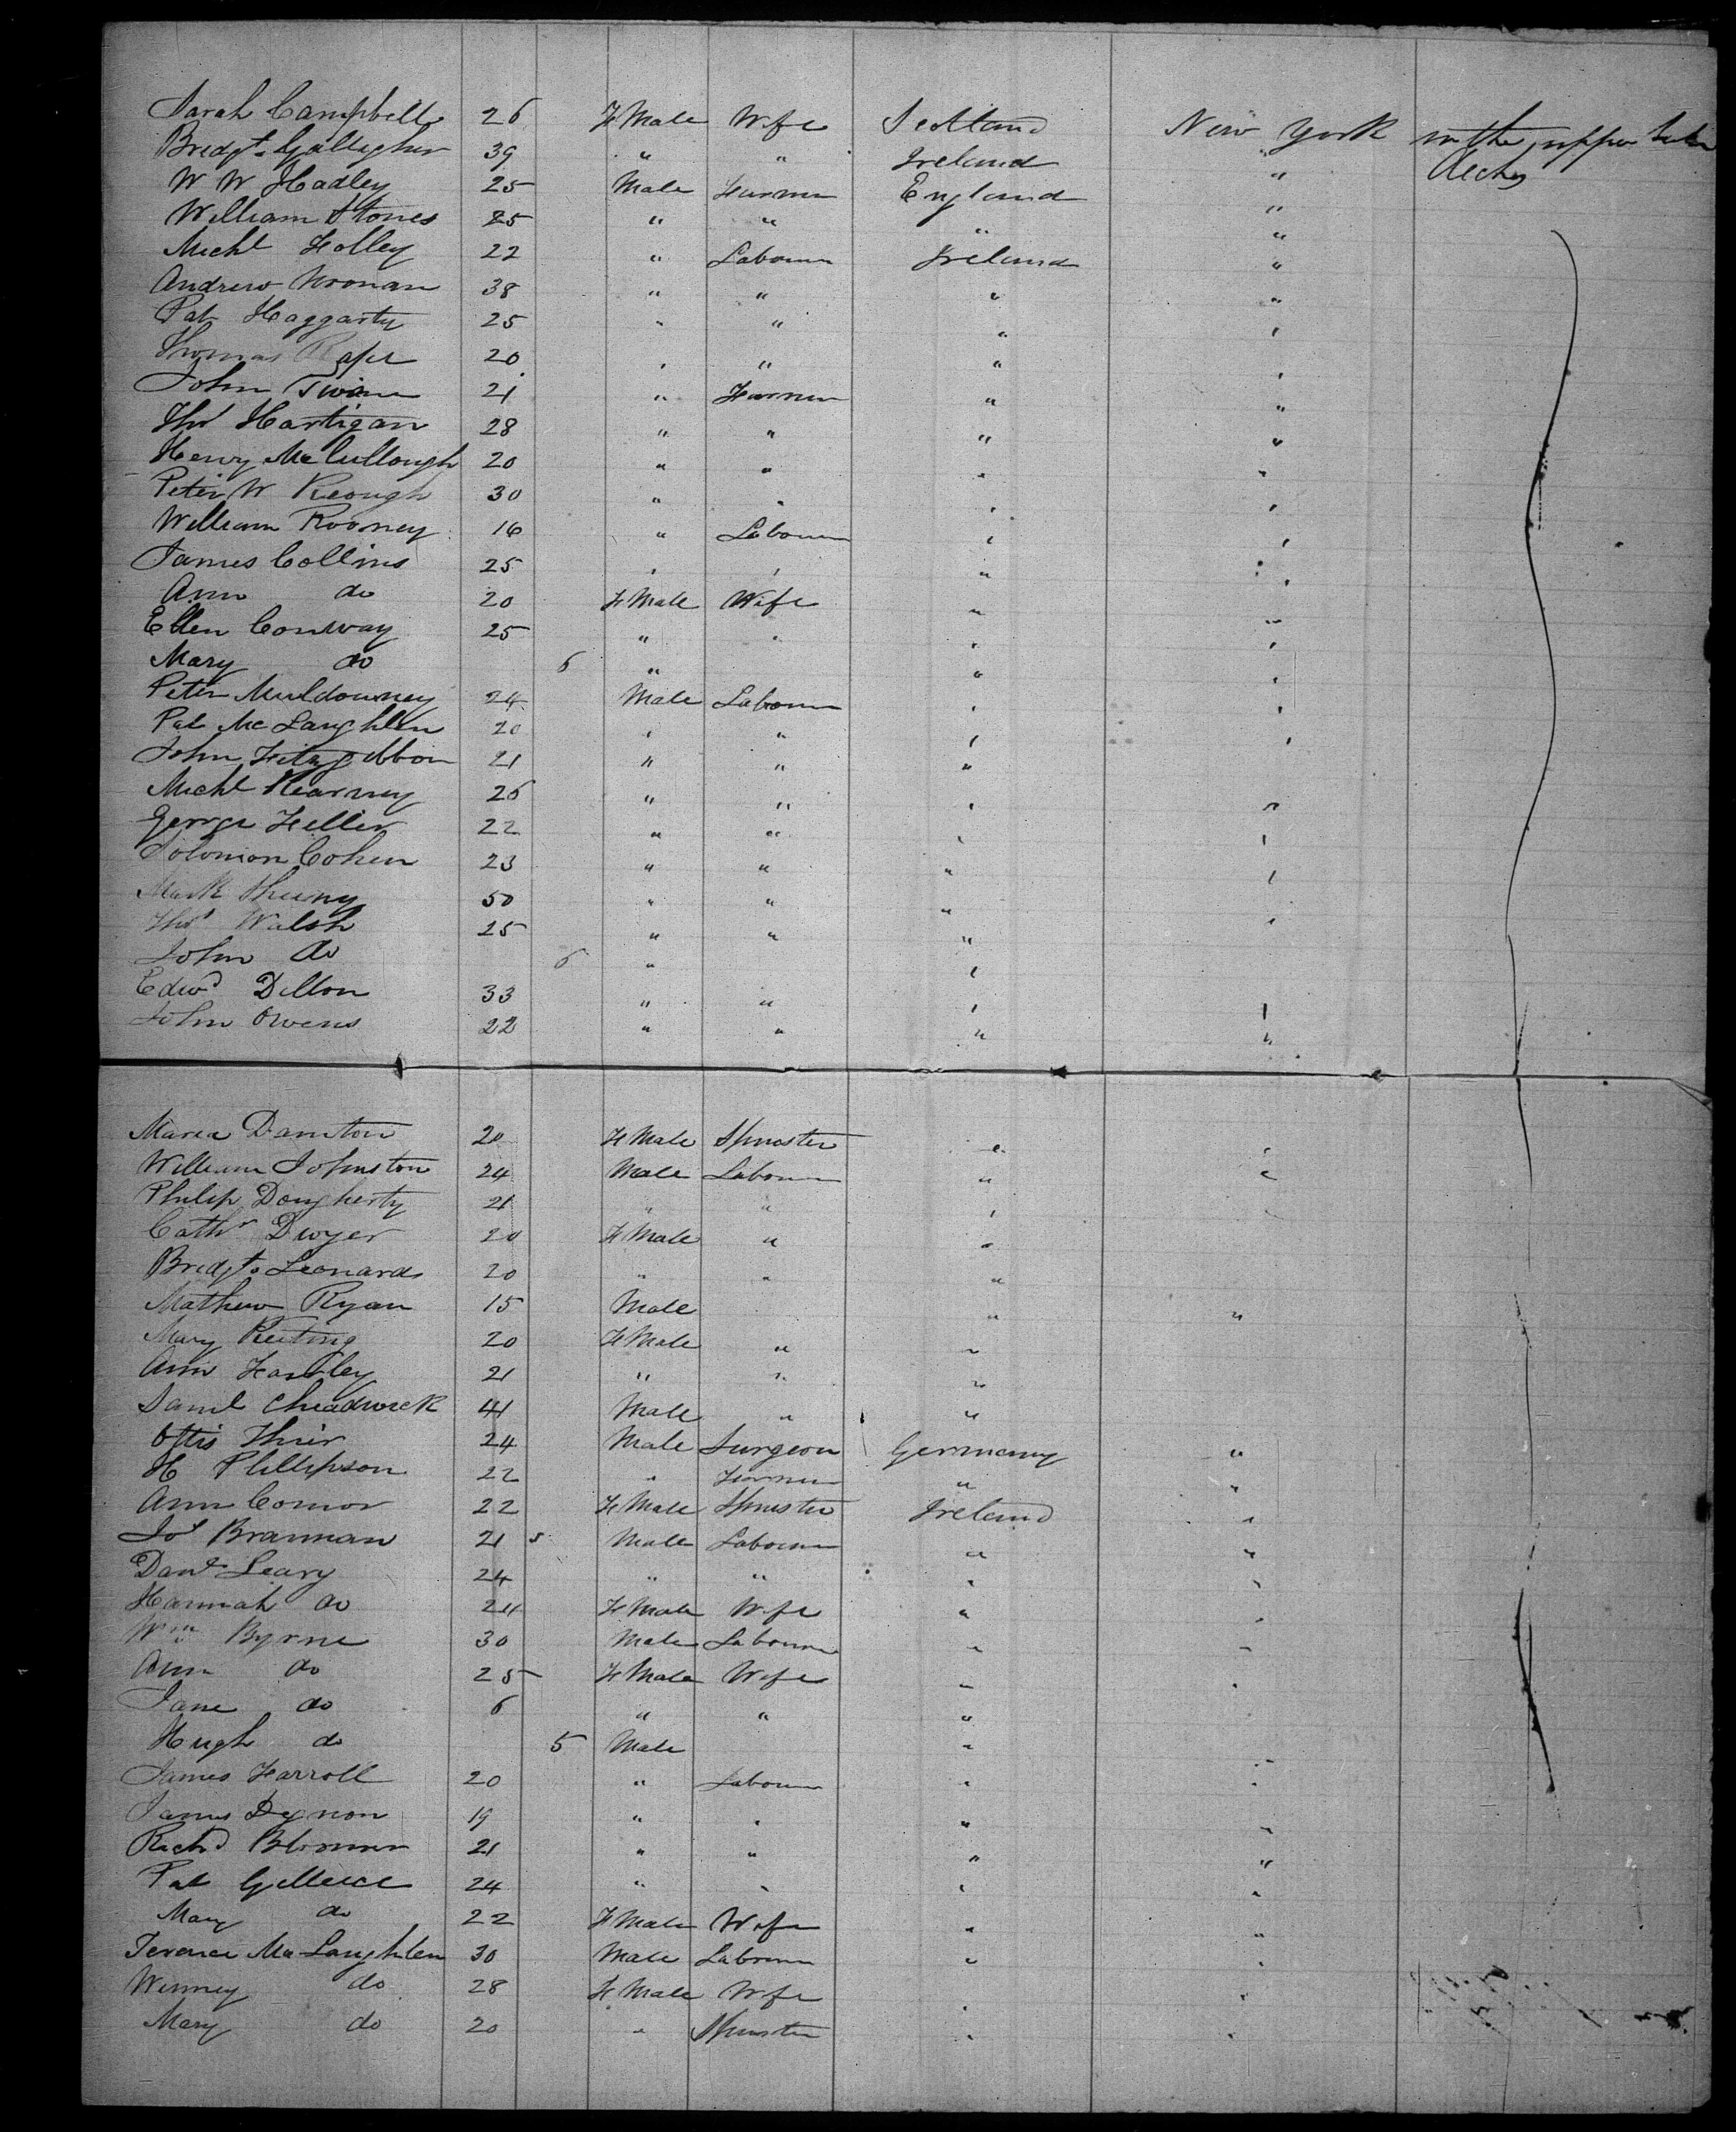 Sarah Campbell 26 F Male Wife Scotland New York in the upper
Bridgt Gallagher 39 " " Ireland " Decks
W W Hadley 25 Male Farmer England "
William Stones 25 " " " "
Michl Folley 22 " Labourer Ireland "
Andrew Noonan 38 " " " "
Pat Haggarty 25 " " " "
Thomas 20 " " " "
John 21 " Farmer " "
Thos Hartigan 28 " " " "
Henry McCullough 20 " " " "
Peter W Keough 30 " " " "
William Rooney 16 " Labourer " "
James Collins 25 " " " "
Ann do 20 F Male Wife " "
Ellen Conway 25 " " " "
Mary do 6 " " "
Peter Muldowney 24 Male Labourer " "
Pat McLaughlen 20 " " " "
John Fitzgibbon 21 " " " "
Michl Kearney 26 " " " "
George Feller 22 " " " "
Solomon Cohen 23 " " " "
Mark 50 " " " "
Thos Walsh 25 " " "
John do 6 " "
Edwd Dillon 33 " " " "
John Owens 22 " " " "
Maria Damton 20 F Male Spinster " "
William Johnston 24 Male Labourer " "
Philip Dougherty 21 " " " "
Cathr Dwyer 20 F Male " "
Bridgt Leonard 20 " " "
Mathew Ryan 15 Male " "
Mary Keiting 20 F Male " "
Ann 21 " " "
Saml Chadwick 41 Male " "
Ottis 24 Male Surgeon Germany "
H Phillipson 22 " Farmer " "
Ann Connor 22 F Male Spinster Ireland "
Jos Brannan 21 5 Male Labourer " "
Danl Leary 24 " " " "
Hannah do 24 F Male Wife " "
Wm Byrne 30 Male Labourer " "
Ann do 25 F Male Wife " "
Jane do 6 " " "
Hugh do 5 Male " "
James Farroll 20 " Labourer " "
James Dynon 19 " " " "
Richd 21 " " " "
Pat 24 " " " "
Mary do 22 F Male Wife " "
Terence McLaughlen 30 Male Labourer " "
Winney do 28 F Male Wife " "
Mary do 20 " Spinster " "